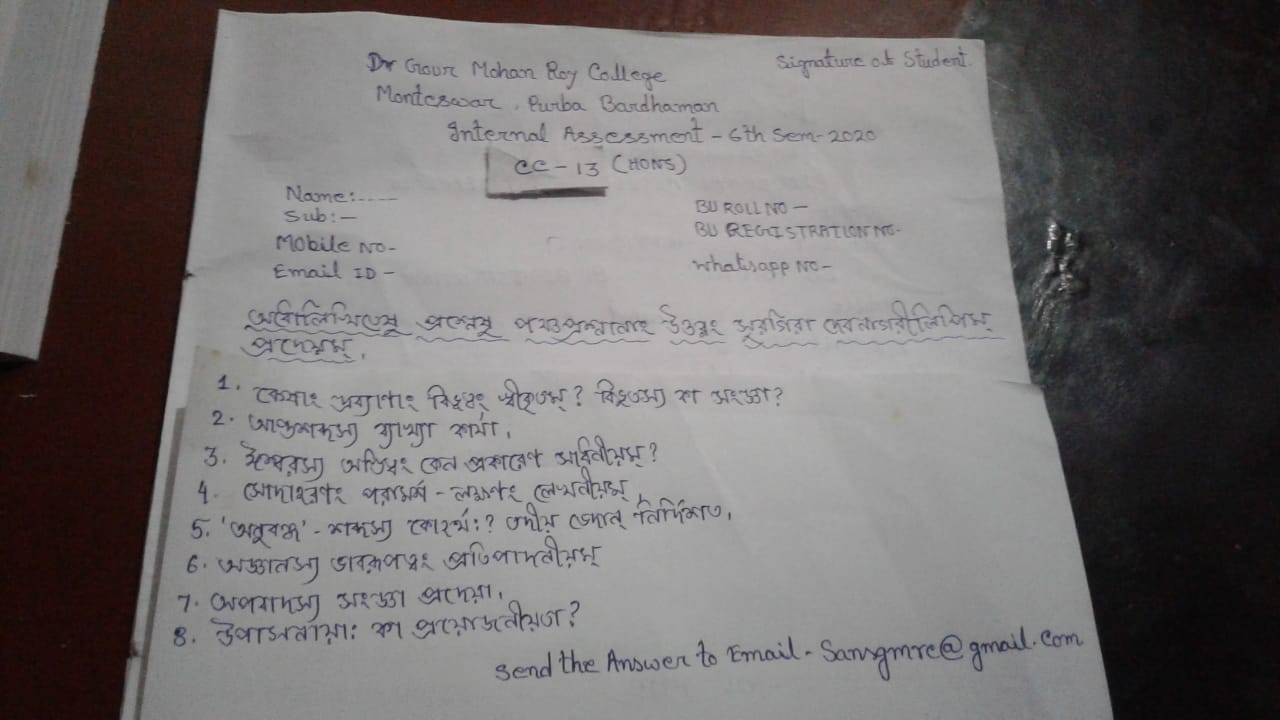 Dr Gour Mohan Roy College
Signature of Student.
Monteswar, Purba Bardhaman
Internal Assessment - 6th Sem-2020
CC - 13 (HONS)
Name:----
Sub:-
Mobile No-
Email ID -
BU ROLL NO -
BU REGISTRATION NO-
Whatsapp No-
অধোলিখিতেষু প্রশ্নেষু পঞ্চপ্রশ্নানাং উত্তরং সুরগিরা দেবনাগরীলিপিম্
প্রদেয়ম্।
1. কেষাং দ্রব্যাণাং বিভুত্বং স্বীকৃতম্? বিভুতস্য কা সংজ্ঞা?
2. আপ্তশব্দস্য ব্যাখ্যা কার্যা।
3. ঈশ্বরস্য অস্তিত্বং কেন প্রকারেণ সাধনীয়ম্?
4. সোদাহরণং পরামর্শ - লক্ষণং লেখনীয়ম্
5. 'অনুবন্ধ' - শব্দস্য কোহর্থঃ? তদীয় ভেদান্ নির্দিশত।
6. অজ্ঞানস্য ভাবরূপত্বং প্রতিপাদনীয়ম্
7. অপবাদস্য সংজ্ঞা প্রদেয়া।
8. উপাসনায়াঃ কা প্রয়োজনীয়তা?
Send the Answer to Email - Sansgmrc@gmail.com